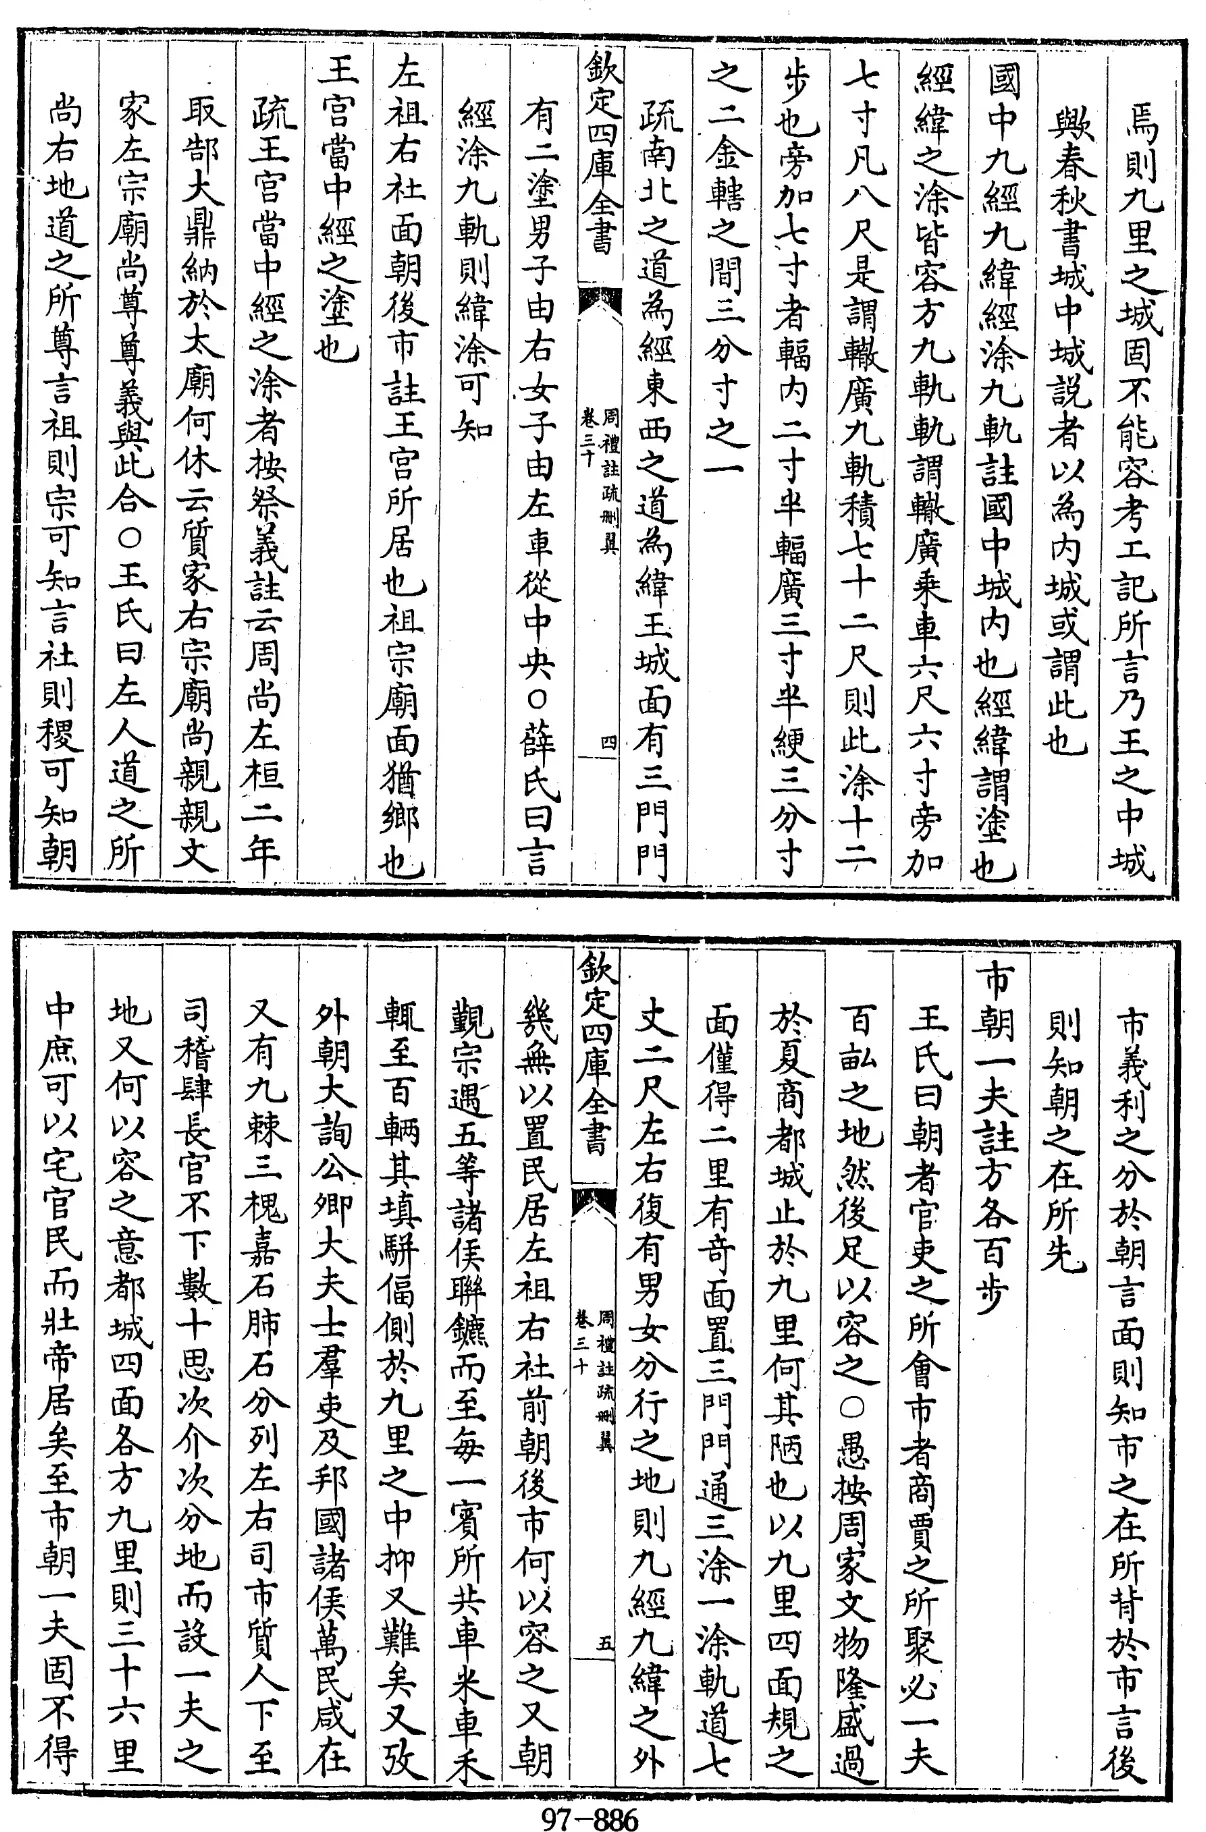 焉則九里之城固不能容考工記所言乃王之中城
歟春秋書城中城説者以為内城或謂此也
國中九經九緯經涂九軌註國中城内也經緯謂塗也
經緯之涂皆容方九軌軌謂轍廣乘車六尺六寸旁加
七寸凡八尺是謂轍廣九軌積七十二尺則此涂十二
步也旁加七寸者輻内二寸半輻廣三寸半綆三分寸
之二金轄之間三分寸之一
疏南北之道為經東西之道為緯王城面有三門門
欽定四庫全書
周禮註疏刪翼
卷三十
四
有二塗男子由右女子由左車從中央○薛氏曰言
經涂九軌則緯涂可知
左祖右社面朝後市註王宮所居也祖宗廟面猶鄉也
王宮當中經之塗也
疏王宮當中經之涂者按祭義註云周尚左桓二年
取郜大鼎納於太廟何休云質家右宗廟尚親親文
家左宗廟尚尊尊義與此合○王氏曰左人道之所
尚右地道之所尊言祖則宗可知言社則稷可知朝
市義利之分於朝言面則知市之在所背於市言後
則知朝之在所先
市朝一夫註方各百步
王氏曰朝者官吏之所會市者商賈之所聚必一夫
百畝之地然後足以容之○愚按周家文物隆盛過
於夏商都城止於九里何其陋也以九里四面規之
面僅得二里有奇面置三門門通三涂一涂軌道七
丈二尺左右復有男女分行之地則九經九緯之外
欽定四庫全書
周禮註疏刪翼
卷三十
五
幾無以置民居左祖右社前朝後市何以容之又朝
覲宗遇五等諸侯聯鑣而至每一賓所共車米車禾
輒至百輛其填駢偪側於九里之中抑又難矣又攷
外朝大詢公卿大夫士羣吏及邦國諸侯萬民咸在
又有九棘三槐嘉石肺石分列左右司市質人下至
司稽肆長官不下數十思次介次分地而設一夫之
地又何以容之意都城四面各方九里則三十六里
中庶可以宅官民而壯帝居矣至市朝一夫固不得
97-886